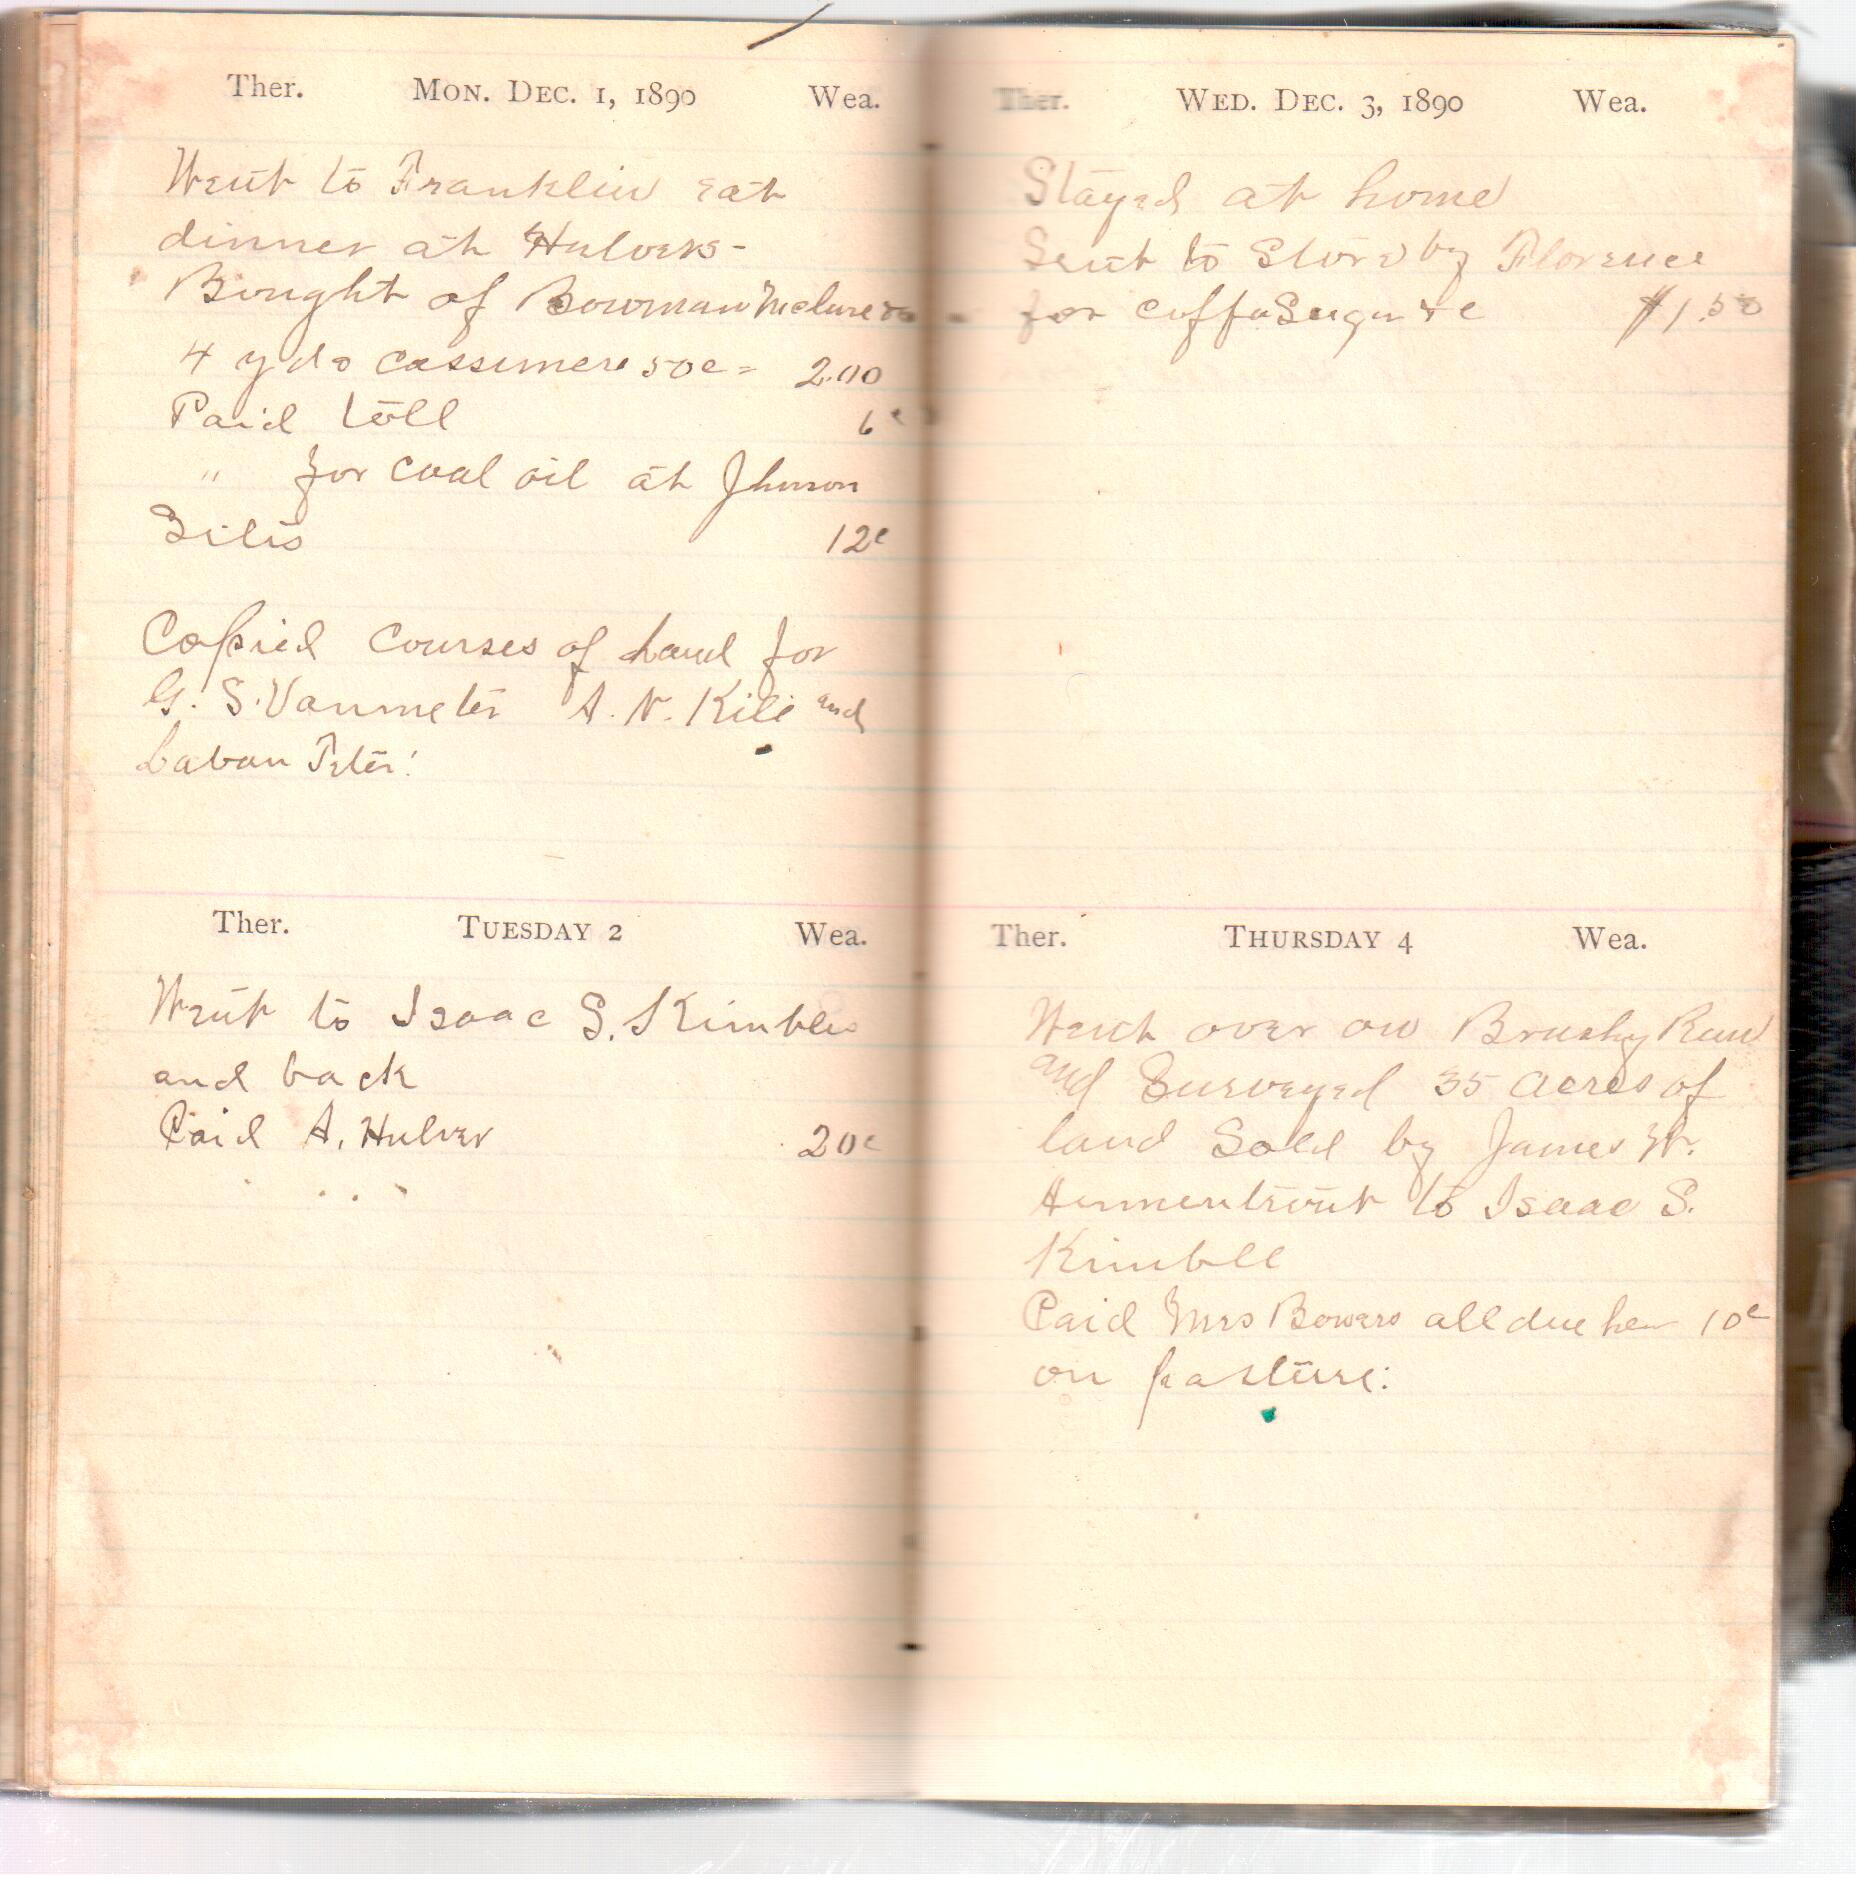 Ther. Mon. Dec. 1, 1890 Wea.
Went to Franklin eat
dinner at Hulvers-
Bought of Bowman Mclure
4 yds cassimere 50c = 2.00
Paid toll 6c
" for coal oil at Jhnson
12c
Copied courses of Land for
G. S. Vanmeter A. N. Kile and
Laban Peter.
Ther. Tuesday 2 Wea.
Went to Isaac S. Kimbles
and back
Paid A. Hulver 20c
Ther. Wed. Dec. 3, 1890 Wea.
Stayed at home
Sent to Store by Florence
for coffe Sugar &c $1.50
Ther. Thursday 4 Wea.
Went over on Brushy Run
and Surveyed 35 acres of
land Sold by James W.
Armentrout to Isaac S.
Kimble
Paid Mrs Bowers all due her 10c
on pasture.